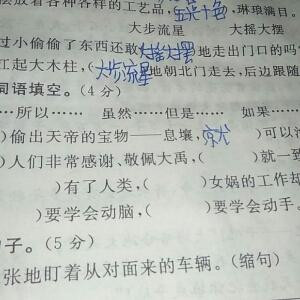 摆放着各种各样的工艺品,五菜十色,琳琅满目。
大步流星 大摇大摆
过小偷偷了东西还敢大摇大摆地走出门口的吗
扛起大木柱,(大步流星)地朝北门走去,后边跟随
词语填空。(4分)
……所以…… 虽然……但是…… 如果……
)偷出天帝的宝物——息壤,就 )可以治
)人们非常感谢、敬佩大禹,( )就一致
)有了人类,( )女娲的工作却
)要学会动脑,( )要学会动手。
句子。(5分)
张地盯着从对面来的车辆。(缩句)